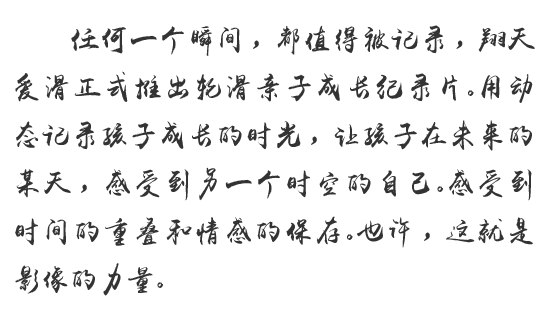 任何一个瞬间，都值得被记录，翔天
爱滑正式推出轮滑亲子成长纪录片。用动
态记录孩子成长的时光，让孩子在未来的
某天，感受到另一个时空的自己。感受到
时间的重叠和情感的保存。也许，这就是
影像的力量。